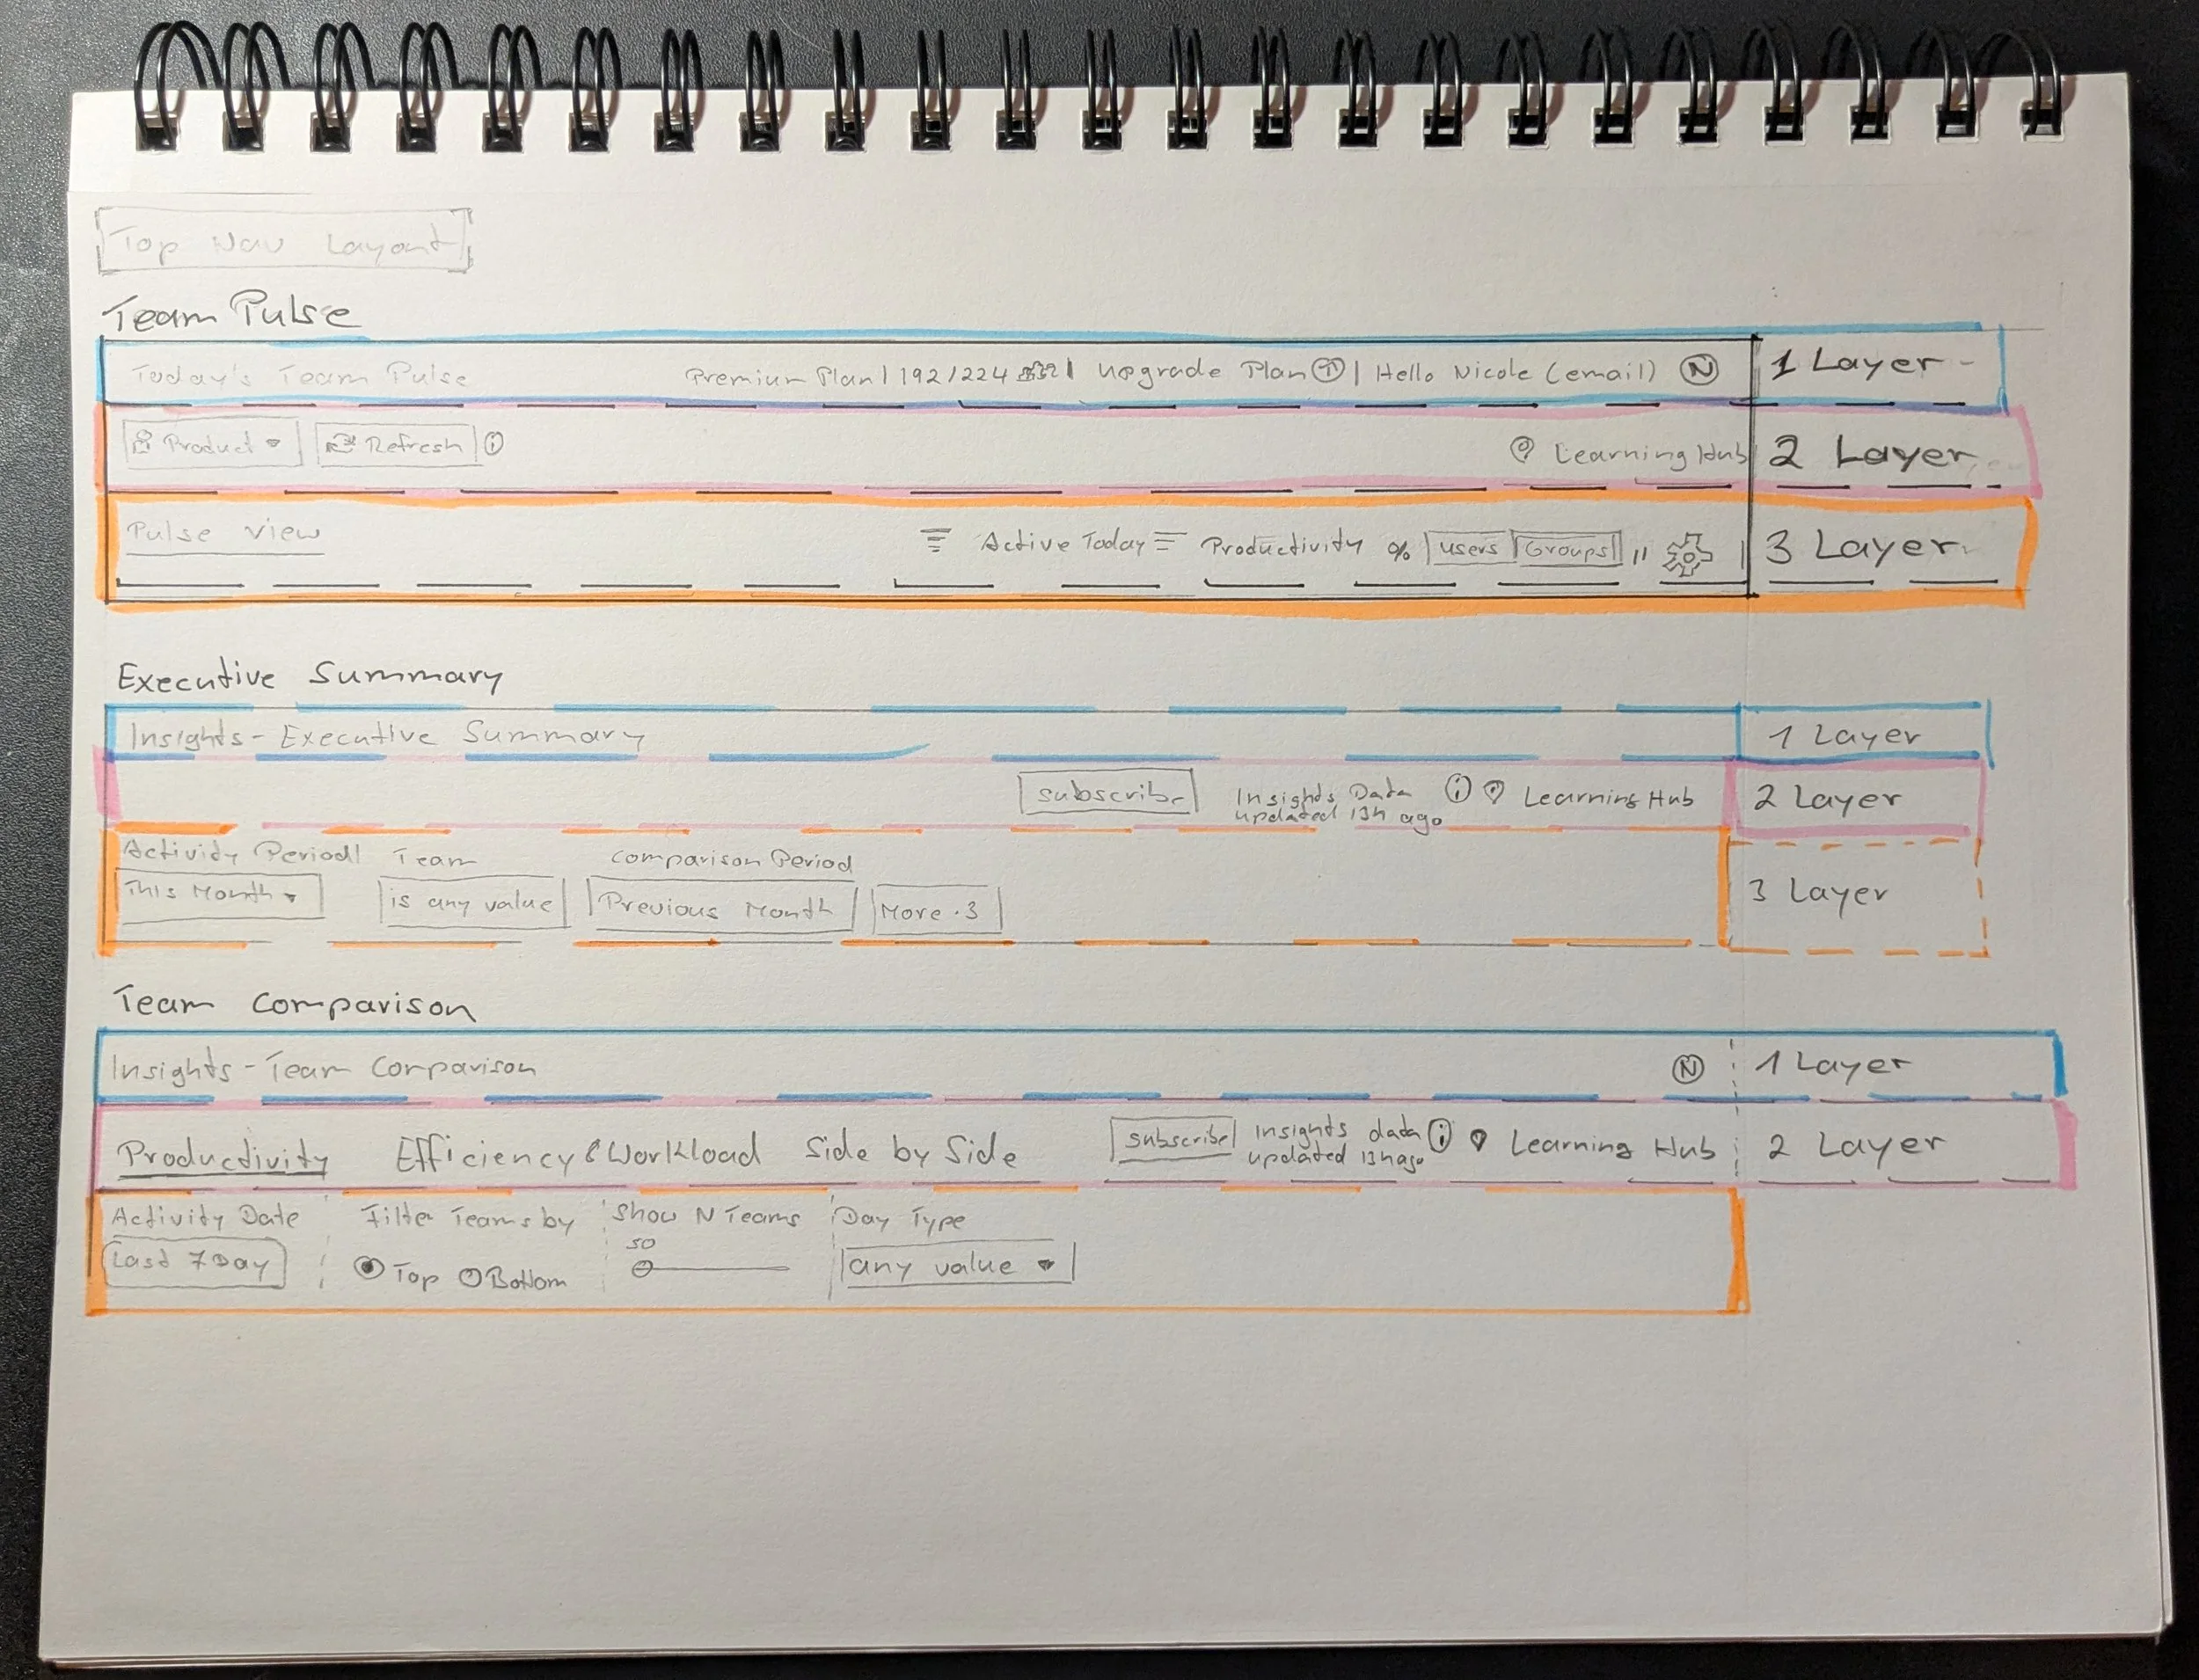 Top Nav Layout
Team Pulse
Today's Team Pulse Premium Plan | 192/224 | Upgrade Plan | Hello Nicole (email) N 1 Layer
Product Refresh i Learning Hub 2 Layer
Pulse View Active Today Productivity % Users Groups 3 Layer
Executive Summary
Insights - Executive Summary 1 Layer
Subscribe Insights Data updated 13h ago i Learning Hub 2 Layer
Activity Period Team Comparison Period
This Month is any value Previous Month More · 3 3 Layer
Team Comparison
Insights - Team Comparison N 1 Layer
Productivity Efficiency & Workload Side by Side Subscribe Insights data updated 13h ago i Learning Hub 2 Layer
Activity Date Filter Teams by Show N Teams Day Type
50
Last 7 Day Top Bottom any value